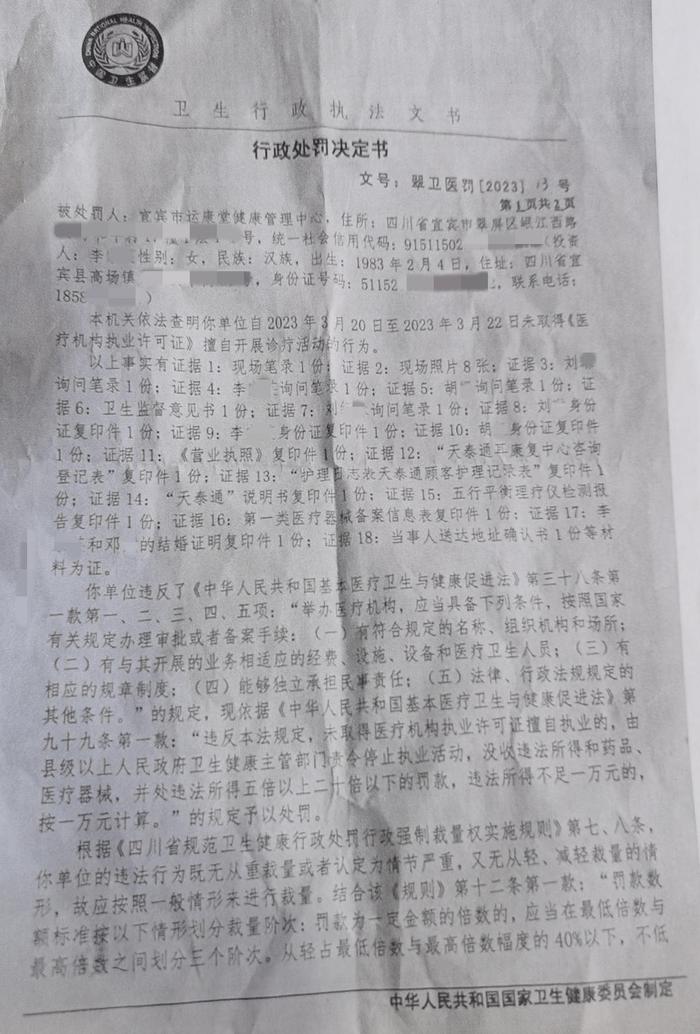 CHINA NATIONAL HEALTH INSPECTION
中国卫生监督
卫生行政执法文书
行政处罚决定书
文号：翠卫医罚[2023] 13 号
第1页共2页
被处罚人：宜宾市运康堂健康管理中心，住所：四川省宜宾市翠屏区岷江西路
号，统一社会信用代码：91511502 （投资
人：李 性别：女，民族：汉族，出生：1983年2月4日，住址：四川省宜
宾县高场镇 号，身份证号码：51152 ，联系电话：
1858 ）
本机关依法查明你单位自2023年3月20日至2023年3月22日未取得《医
疗机构执业许可证》擅自开展诊疗活动的行为。
以上事实有证据1：现场笔录1份；证据2：现场照片8张；证据3：刘
询问笔录1份；证据4：李 询问笔录1份；证据5：胡 询问笔录1份；证
据6：卫生监督意见书1份；证据7：刘 询问笔录1份；证据8：刘 身份
证复印件1份；证据9：李 身份证复印件1份；证据10：胡 身份证复印件
1份；证据11：《营业执照》复印件1份；证据12：“天泰通耳康复中心咨询
登记表”复印件1份；证据13：“护理日志表天泰通顾客护理记录表”复印件1
份；证据14：“天泰通”说明书复印件1份；证据15：五行平衡理疗仪检测报
告复印件1份；证据16：第一类医疗器械备案信息表复印件1份；证据17：李
和邓 的结婚证明复印件1份；证据18：当事人送达地址确认书1份等材
料为证。
你单位违反了《中华人民共和国基本医疗卫生与健康促进法》第三十八条第
一款第一、二、三、四、五项：“举办医疗机构，应当具备下列条件，按照国家
有关规定办理审批或者备案手续：（一）有符合规定的名称、组织机构和场所；
（二）有与其开展的业务相适应的经费、设施、设备和医疗卫生人员；（三）有
相应的规章制度；（四）能够独立承担民事责任；（五）法律、行政法规规定的
其他条件。”的规定，现依据《中华人民共和国基本医疗卫生与健康促进法》第
九十九条第一款：“违反本法规定，未取得医疗机构执业许可证擅自执业的，由
县级以上人民政府卫生健康主管部门责令停止执业活动，没收违法所得和药品、
医疗器械，并处违法所得五倍以上二十倍以下的罚款，违法所得不足一万元的，
按一万元计算。”的规定予以处罚。
根据《四川省规范卫生健康行政处罚行政强制裁量权实施规则》第七、八条，
你单位的违法行为既无从重裁量或者认定为情节严重，又无从轻、减轻裁量的情
形，故应按照一般情形来进行裁量。结合该《规则》第十二条第一款：“罚款数
额标准按以下情形划分裁量阶次：罚款为一定金额的倍数的，应当在最低倍数与
最高倍数之间划分三个阶次。从轻占最低倍数与最高倍数幅度的40%以下，不低
中华人民共和国国家卫生健康委员会制定